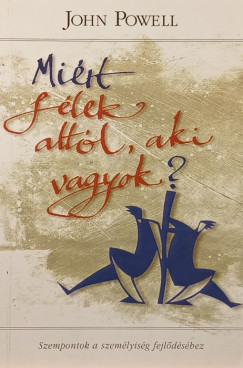 JOHN POWELL
Miért
félek
attól, aki
vagyok?
Szempontok a személyiség fejlődéséhez